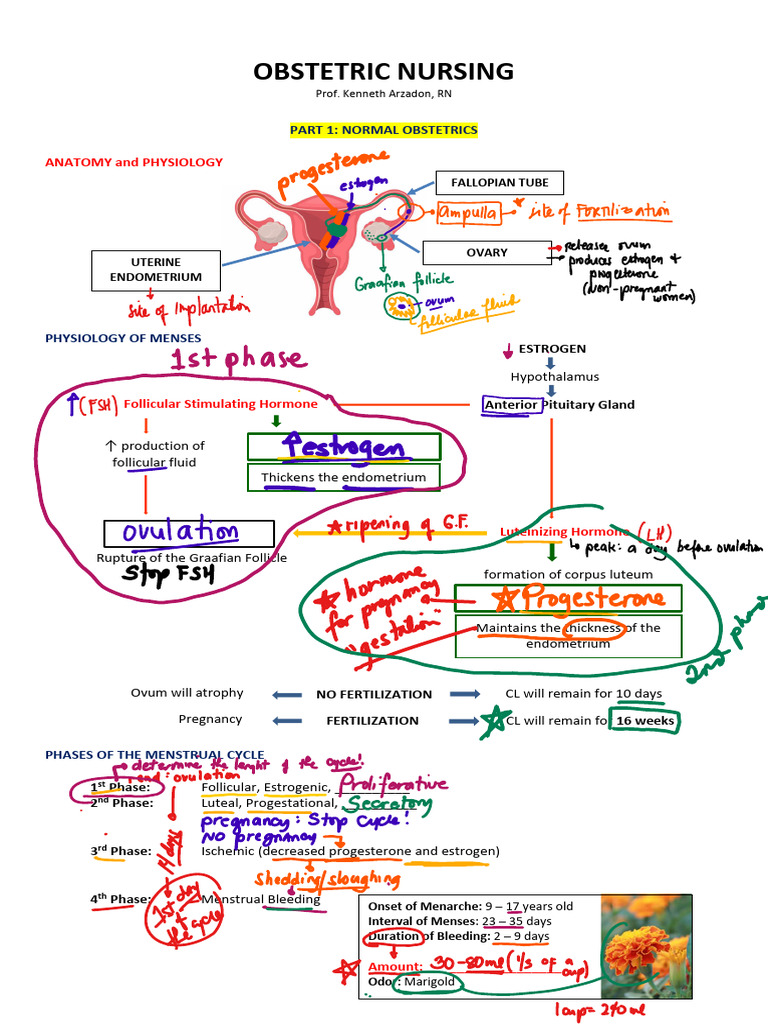 OBSTETRIC NURSING
Prof. Kenneth Arzadon, RN
PART 1: NORMAL OBSTETRICS
ANATOMY and PHYSIOLOGY
progesterone
estrogen
FALLOPIAN TUBE
ampulla
site of Fertilization
OVARY
releases ovum
produces estrogen &
progesterone
(non-pregnant
women)
UTERINE
ENDOMETRIUM
site of implantation
Graafian follicle
ovum
follicular fluid
PHYSIOLOGY OF MENSES
1st phase
ESTROGEN
Hypothalamus
↑ (FSH) Follicular Stimulating Hormone
Anterior Pituitary Gland
↑ production of
follicular fluid
↑ estrogen
Thickens the endometrium
ovulation
Rupture of the Graafian Follicle
Stop FSH
ripening of G.F.
Luteinizing Hormone (LH)
peak: a day before ovulation
formation of corpus luteum
Progesterone
Maintains the thickness of the
endometrium
hormone
for pregnancy
"gestation"
2nd phase
Ovum will atrophy
NO FERTILIZATION
CL will remain for 10 days
Pregnancy
FERTILIZATION
CL will remain for 16 weeks
PHASES OF THE MENSTRUAL CYCLE
determine the lenght of the cycle!
end: ovulation
1st Phase: Follicular, Estrogenic, Proliferative
2nd Phase: Luteal, Progestational, Secretory
pregnancy: Stop cycle!
No pregnancy
3rd Phase: Ischemic (decreased progesterone and estrogen)
14 days
Shedding/sloughing
4th Phase: Menstrual Bleeding
1st day
of
the cycle
Onset of Menarche: 9 – 17 years old
Interval of Menses: 23 – 35 days
Duration of Bleeding: 2 – 9 days
Amount: 30-80ml (1/3 of a
cup)
Odor: Marigold
1 cup = 240 ml